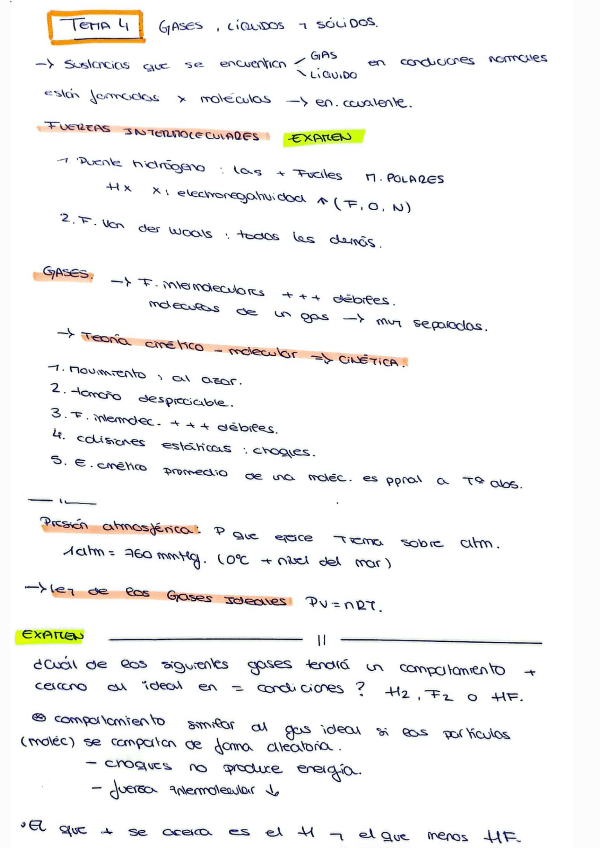 TEMA 4 GASES, LÍQUIDOS Y SÓLIDOS.
→ Sustancias que se encuentran GAS LÍQUIDO en condiciones normales
están formadas x moléculas → en. covalente.
FUERZAS INTERMOLECULARES EXAMEN
1. Puente hidrógeno : las + Fuciles M. POLARES
HX X: electronegatividad ↑ (F, O, N)
2. F. Van der Waals : todas las demás.
GASES. → F. intermoleculares +++ débiles.
moléculas de un gas → muy separadas.
→ Teoría cinético - molecular => CINÉTICA.
1. Movimiento ; al azar.
2. tamaño despreciable.
3. F. intermolec. +++ débiles.
4. colisiones estáticas : choques.
5. E. cinético promedio de una moléc. es ppral a Tª abs.
— 11 —
Presión atmosférica: P que ejerce Tierra sobre atm.
1 atm = 760 mmHg. (0ºC + nivel del mar)
→ Ley de los Gases Ideales PV = nRT.
EXAMEN — 11 —
¿Cuál de los siguientes gases tendrá un comportamiento +
cercano al ideal en = condiciones ? H2, F2 o HF.
comportamiento similar al gas ideal si las partículas
(moléc) se comportan de forma aleatoria.
- choques no produce energía.
- fuerza intermolecular ↓
• El que + se acerca es el H y el que menos HF.